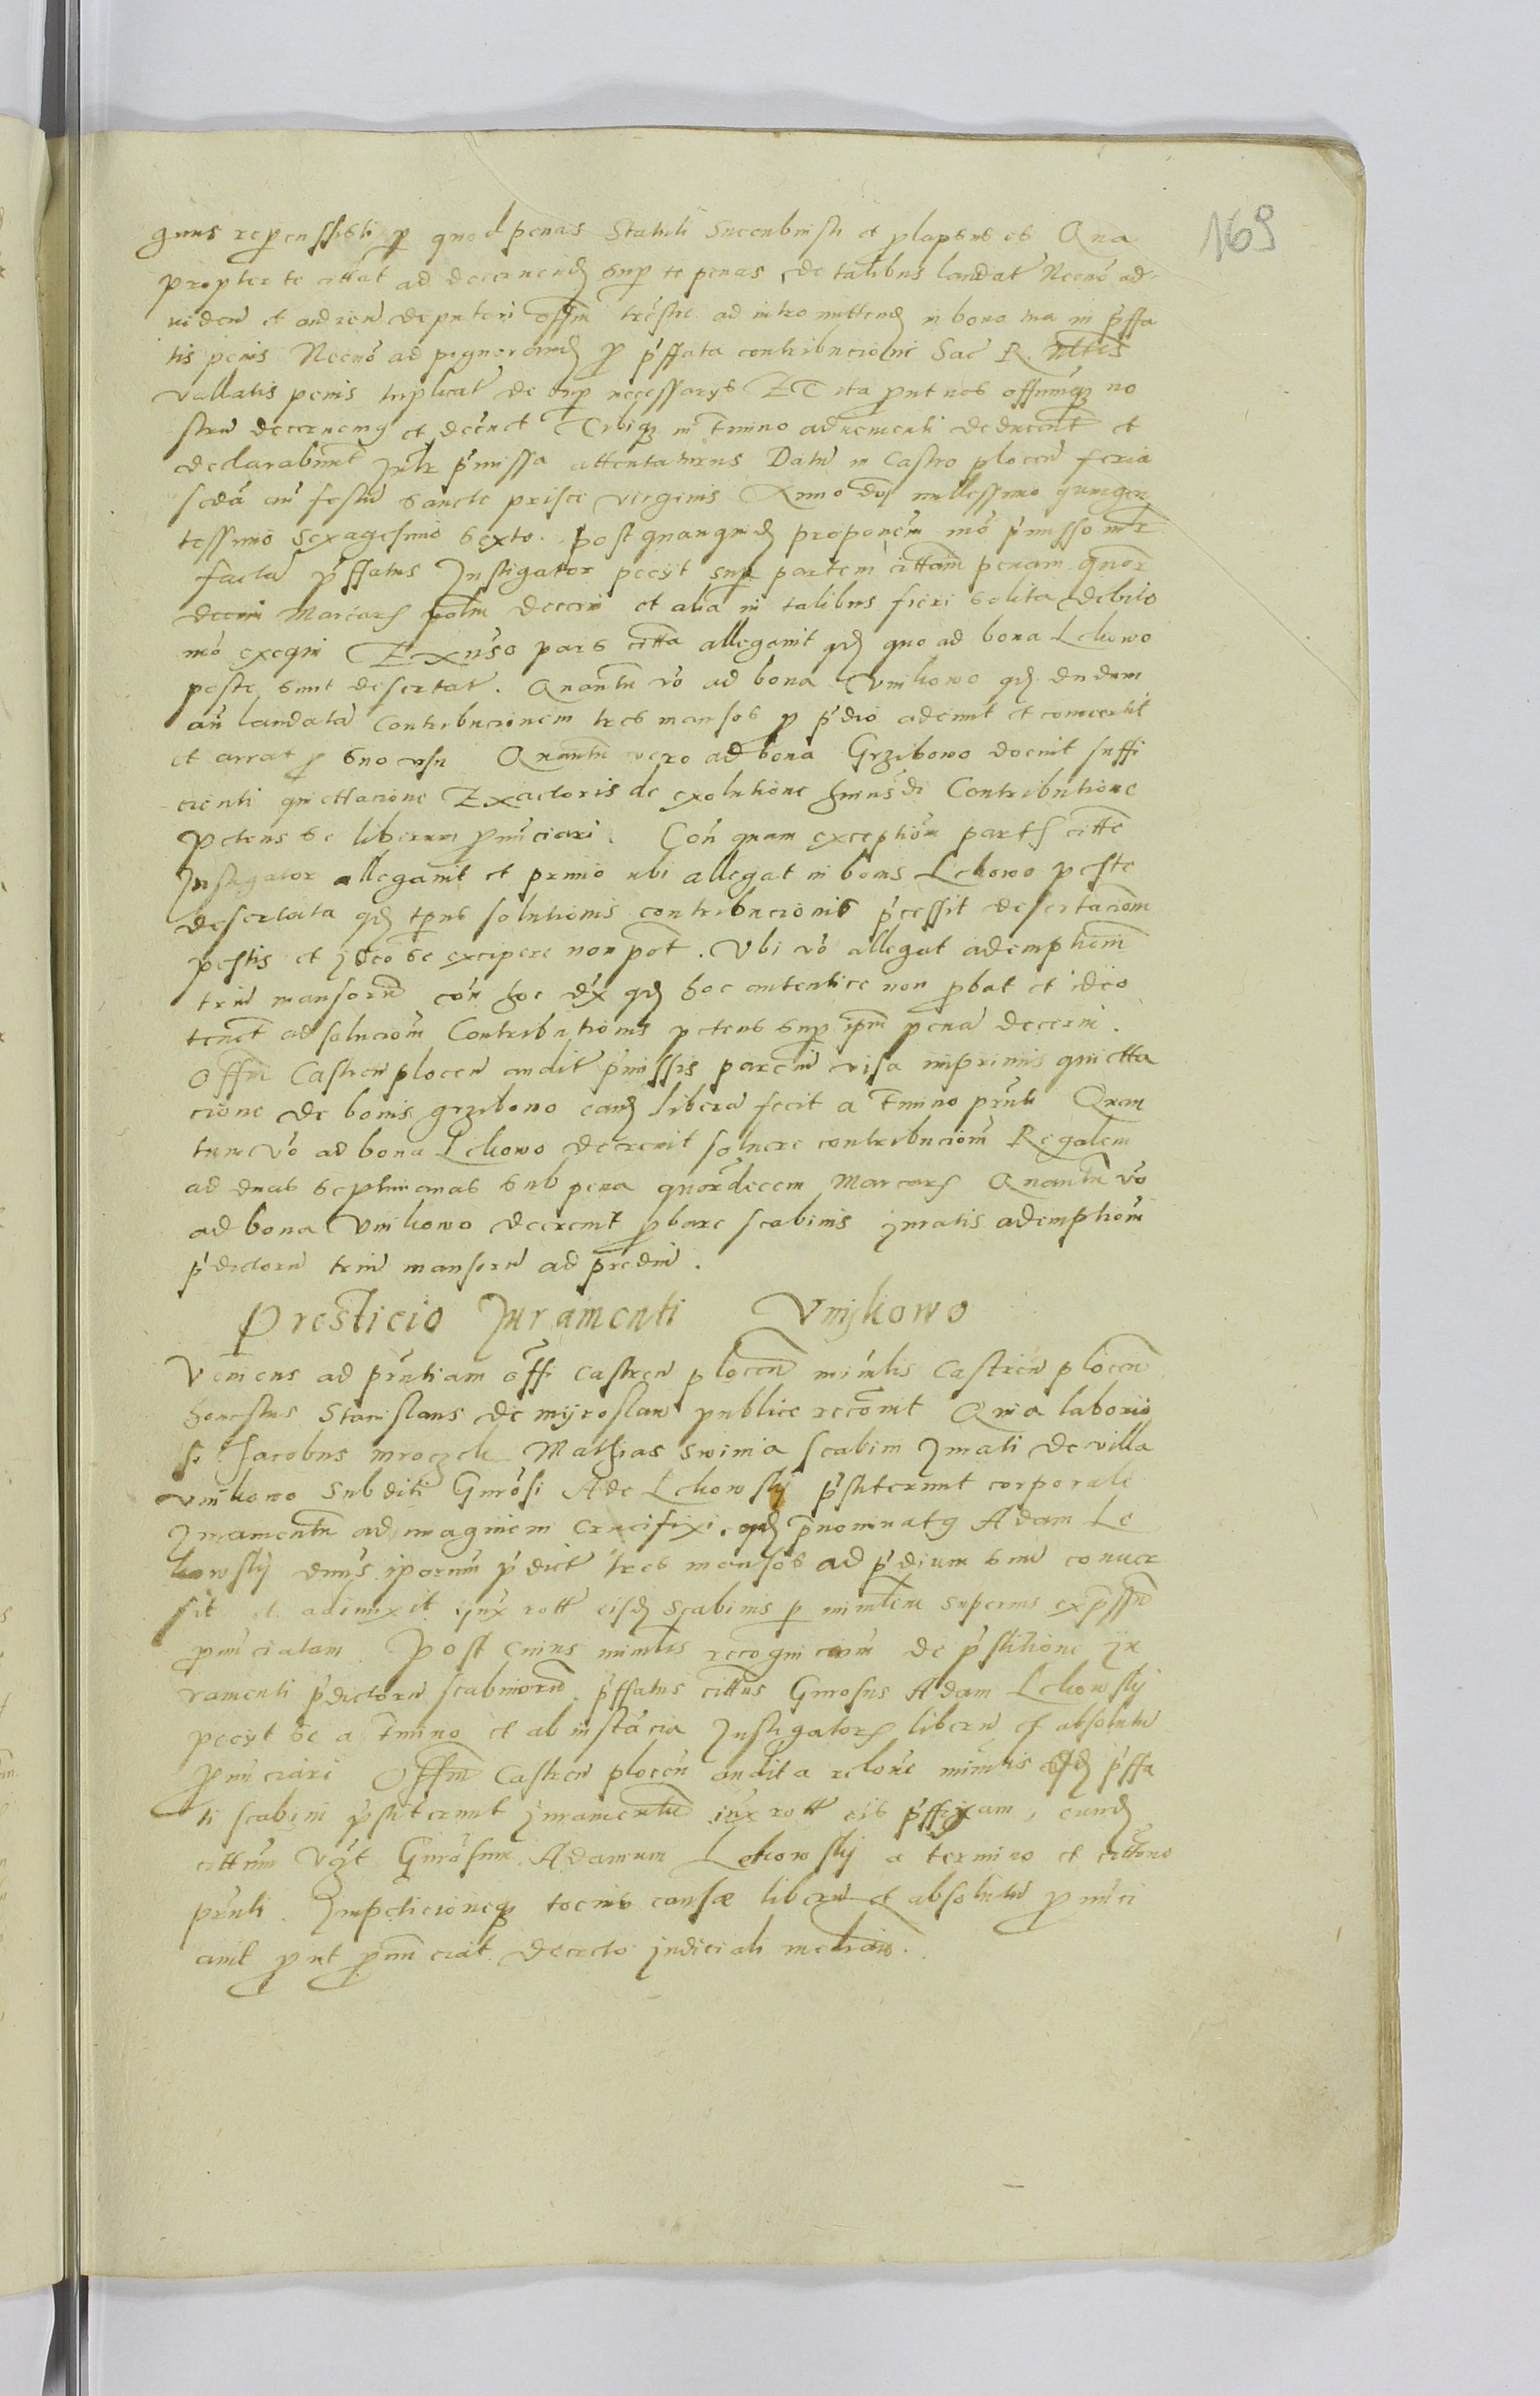 169
guus repenssisti p quod penas Statuti Succubuisti et plapsus es Qua
propter te cittat ad decernend sup te penas de talibus laudat Necno ad
viden et audien deputari offm trestre ad intromittend in bona tua in pffa
tis penis Necno ad pignorand p pffata contribucione Sac R. Mttis
vallatis penis triplicat de sup necessarys Et ita put nos offmq no
stru decernemq et decnet Tibiq in tmino advenienti deducent et
declarabunt Intr pmissa attentaturus Datu in Castro plocen feria
scda an festu sancte prisce virginis Anno dnj millessimo quingen
tessimo sexagesimo sexto. Post quamquid proponem mo pmisso intr
facta pffatus Instigator pecyt sup partem cittam penam quor
decem Marcars polm decerni et alia in talibus fieri solita debito
mo exequi Exuso pars citta allegavit qd quo ad bona Lekowo
peste sunt desertat. Quantu vo ad bona Vnikowo qd dudum
an laudata Contribucionem tres mansos p pdio ademit et convertit
et arrat p suo usu Quantu vero ad bona Grzibowo docuit suffi
cienti quiettacione Exactoris de exolutione huiusdi Contributione
petens se liberum pnuciari. Con quam exceptiom parts citte
Instigator allegavit et primo ubi allegat in bonis Lekowo peste
desertata qd tpus solutionis contribucionis pcessit desertaciom
pestis et ideo se excipere non pot. Ubi vo allegat ademptiom
triu mansoru con hoc dx qd hoc autentice non pbat et ideo
tenet ad soluciom Contributionis petens sup ipm pena decerni.
Offm Castren plocen audit pmissis parciu visa inprimis quietta
cione de bonis grzibowo eand libera fecit a tmino pnti Quan
tum vo ad bona Lekowo decrevit solvere contribuciom Regalem
ad duas septimanas sub pena quordecem Marcars Quantu vo
ad bona Vnikowo decrevit pbare scabinis juratis ademptiom
pdictoru triu mansoru ad prediu.
Presticio Juramenti Vnijkowo
Veniens ad pntiam offi castren plocen mintlis Castren plocen
honestus Stanislaus de myroslaw publice recovit Quia laborio
si Jacobus mroczek Mathias swinia scabini Jurati de villa
vnikowo subditi Gnrosi Ade Lekowskj pstiterunt corporale
Juramentu ad imaginem crucifixi qd pnominatq Adam Le
kowskj dnus iporum pdict tres mansos ad pdium suu conver
sit et adiunxit jux rott eisd scabinis p mintlem superius expssu
pnuciatam Post cuius mintlis recogniciom de pstitione ju
ramenti pdictoru scabinoru pffatus cittus Gnrosus Adam Lekowskj
pecyt se a tmino et ab instacia Instigators liberu et absolutu
pnuciari Offm Castren plocen audita relone mintlis qd pffa
ti scabini pstiterunt juramentu jux rott eis pffixam, eund
cittum Vgt Gnrosum Adamum Lekowskj a termino et cittone
pnti Impeticioneq tocius causæ liberu et absolutu pnuci
avit put pnunciat decreto judiciali median.